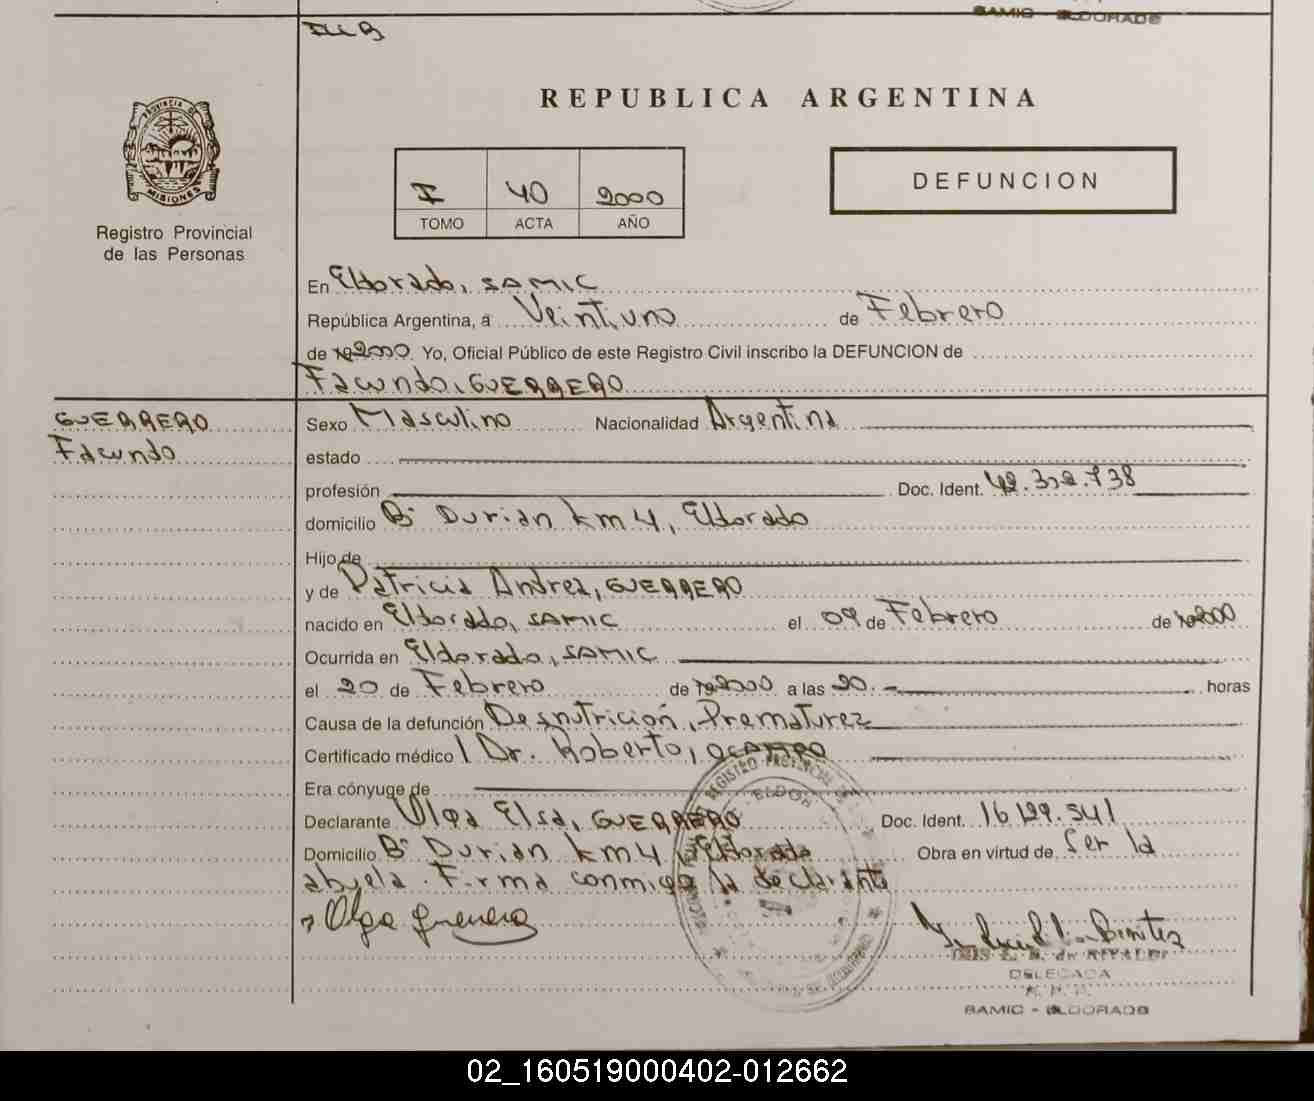 SAMIC - ELDORADO
REPUBLICA ARGENTINA
PROVINCIA DE
MISIONES
Registro Provincial
de las Personas
I 40 2000
TOMO ACTA AÑO
DEFUNCION
En Eldorado, SAMIC
República Argentina, a Veintiuno de Febrero
de 2000 Yo, Oficial Público de este Registro Civil inscribo la DEFUNCION de
Facundo, GUERRERO
GUERRERO
Facundo
Sexo Masculino Nacionalidad Argentina
estado
profesión Doc. Ident. 42.332.738
domicilio Bº Durian km 4, Eldorado
Hijo de
y de Patricia Andrea, GUERRERO
nacido en Eldorado, SAMIC el 09 de Febrero de 2000
Ocurrida en Eldorado, SAMIC
el 20 de Febrero de 2000 a las 20.- horas
Causa de la defunción Desnutrición, Prematurez
Certificado médico Dr. Roberto, OCAMPO
Era cónyuge de
Declarante Olga Elsa, GUERRERO Doc. Ident. 16.129.541
Domicilio Bº Durian km 4, Eldorado Obra en virtud de Ser la
abuela. Firma conmigo la declarante
Olga Guerrero
DELEGADA
SAMIC - ELDORADO
02_160519000402-012662